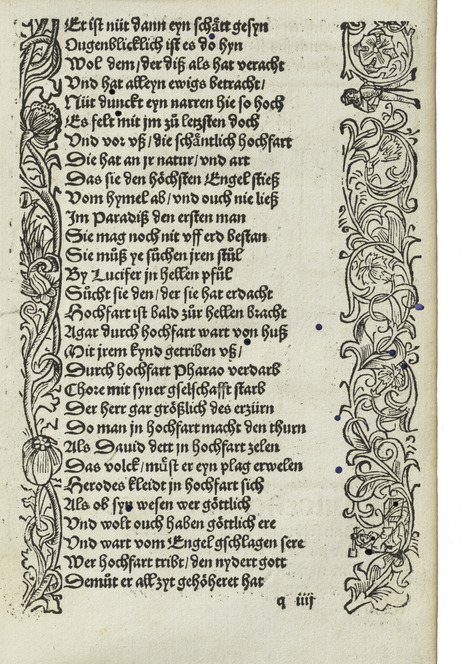 Et ist nüt dann eyn schått gesyn
Ougenblicklich ist es do hyn
Wol dem/der diß als hat veracht
Vnd hat alleyn ewigs betracht/
Nüt dunckt eyn narren hie so hoch
Es felt mit jm zů letzsten doch
Vnd vor vß/die schåntlich hochfart
Die hat an jr natur/vnd art
Das sie den höchsten Engel stieß
Vom hymel ab/vnd ouch nie ließ
Jm Paradiß den ersten man
Sie mag noch nit vff erd bestan
Sie můß ye sůchen jren stůl
By Lucifer jn hellen pfůl
Sůcht sie den/der sie hat erdacht
Hochfart ist bald zůr hellen bracht
Agar durch hochfart wart von huß
Mit jrem kynd getriben vß/
Durch hochfart Pharao verdarb
Chore mit syner gselschafft starb
Der herr gar größlich des erzürn
Do man jn hochfart macht den thurn
Als Dauid dett jn hochfart zelen
Das volck/můst er eyn plag erwelen
Herodes kleidt jn hochfart sich
Als ob syn wesen wer göttlich
Vnd wolt ouch haben göttlich ere
Vnd wart vom Engel gschlagen sere
Wer hochfart tribt/den nydert gott
Demůt er allzyt gehöheret hat
q iiij